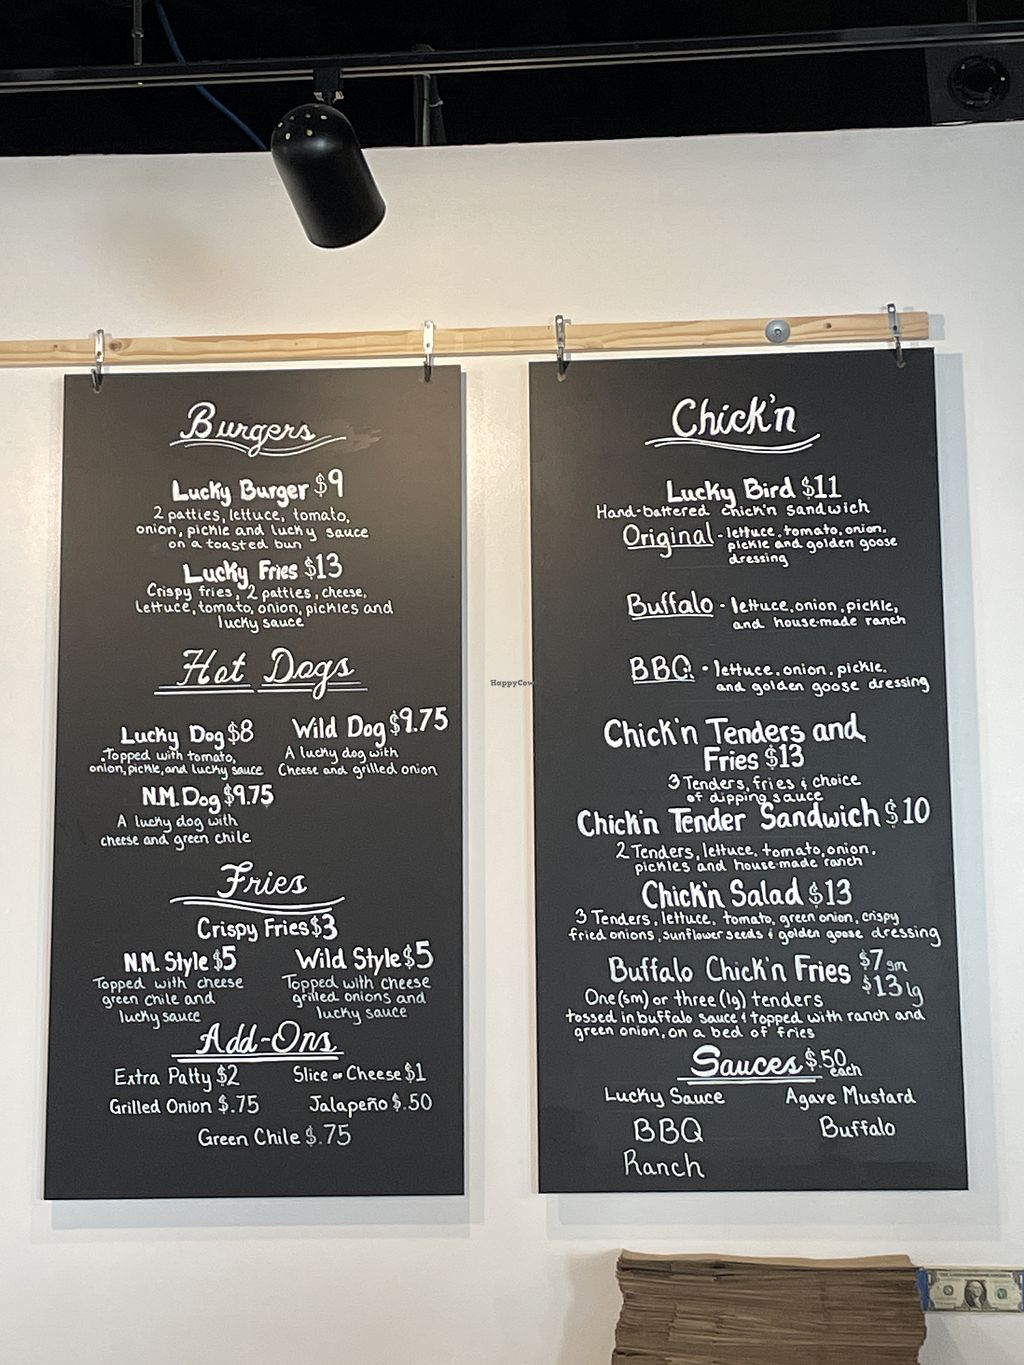 Burgers
Lucky Burger $9
2 patties, lettuce, tomato,
onion, pickle and lucky sauce
on a toasted bun
Lucky Fries $13
Crispy fries, 2 patties, cheese,
lettuce, tomato, onion, pickles and
lucky sauce
Hot Dogs
Lucky Dog $8
Topped with tomato,
onion, pickle, and lucky sauce
Wild Dog $9.75
A lucky dog with
Cheese and grilled onion
N.M. Dog $9.75
A lucky dog with
cheese and green chile
Fries
Crispy Fries $3
N.M. Style $5
Topped with cheese
green chile and
lucky sauce
Wild Style $5
Topped with cheese
grilled onions and
lucky sauce
Add-Ons
Extra Patty $2
Slice of Cheese $1
Grilled Onion $.75
Jalapeño $.50
Green Chile $.75
Chick'n
Lucky Bird $11
Hand-battered chick'n sandwich
Original - lettuce, tomato, onion,
pickle and golden goose
dressing
Buffalo - lettuce, onion, pickle,
and house-made ranch
BBQ - lettuce, onion, pickle,
and golden goose dressing
Chick'n Tenders and
Fries $13
3 Tenders, fries & choice
of dipping sauce
Chick'n Tender Sandwich $10
2 Tenders, lettuce, tomato, onion,
pickles and house-made ranch
Chick'n Salad $13
3 Tenders, lettuce, tomato, green onion, crispy
fried onions, sunflower seeds & golden goose dressing
Buffalo Chick'n Fries $7 sm
$13 lg
One (sm) or three (lg) tenders
tossed in buffalo sauce & topped with ranch and
green onion, on a bed of fries
Sauces $.50 each
Lucky Sauce
Agave Mustard
BBQ
Buffalo
Ranch
HappyCow